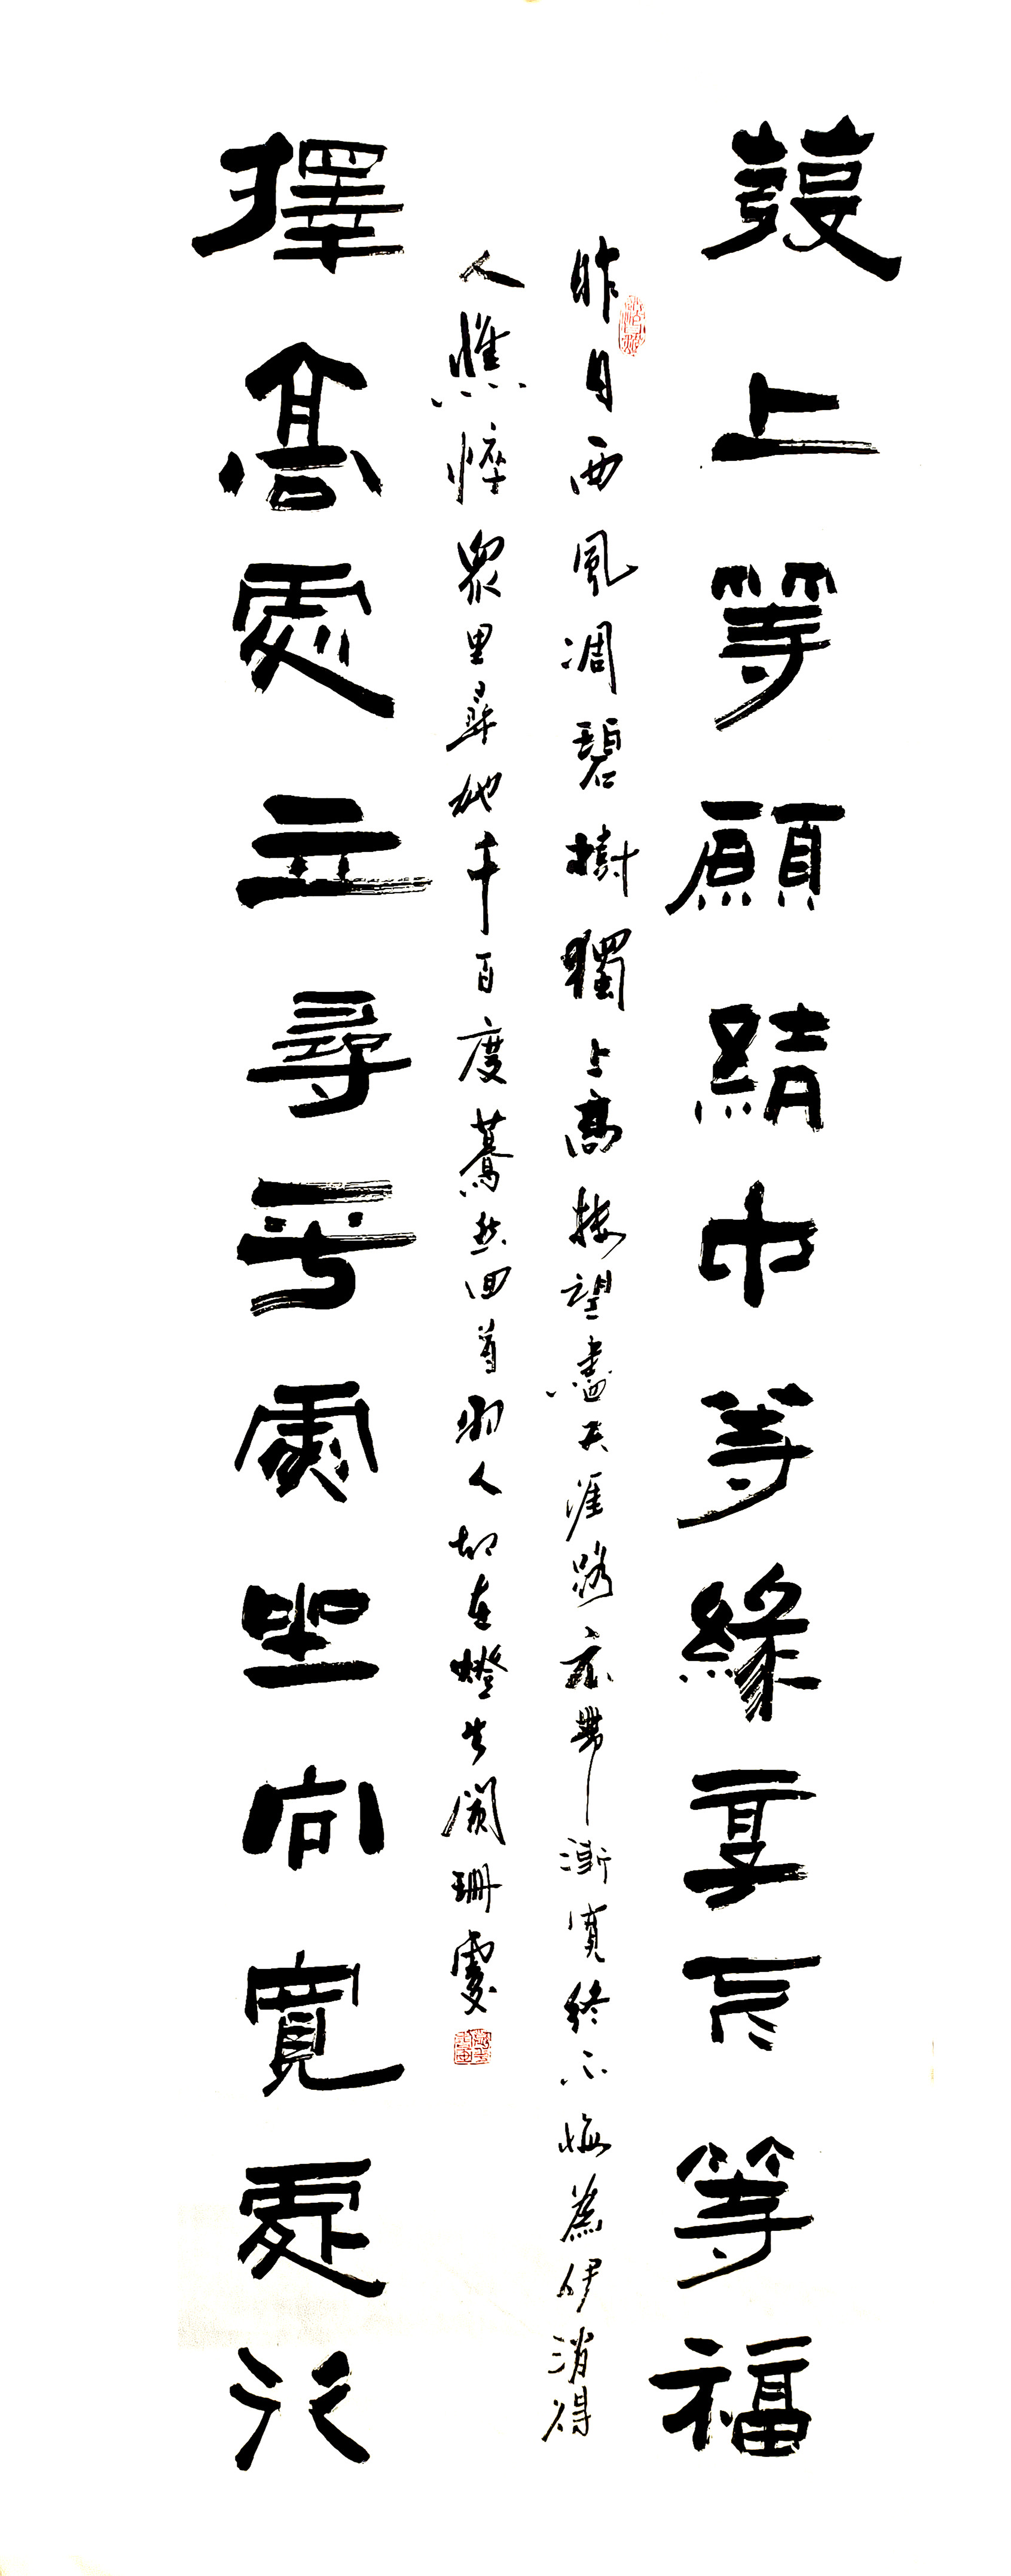 發上等願結中等緣享下等福
昨日西風凋碧樹獨上高樓望盡天涯路衣帶漸寬終不悔為伊消得
人憔悴眾里尋他千百度驀然回首那人却在燈火闌珊處
擇高處立尋平處坐向寬處行